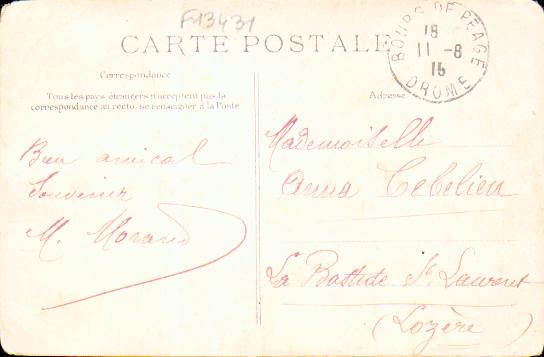 F13431
CARTE POSTALE
BOURG DE PEAGE
18
11 -8
15
DROME
Correspondance
Tous les pays étrangers n'acceptent pas la
correspondance au recto, se renseigner à la Poste
Bon amical
Souvenir
M. Morand
Adresse
Mademoiselle
Anna Cebelieu
La Bastide St Laurent
(Lozère)